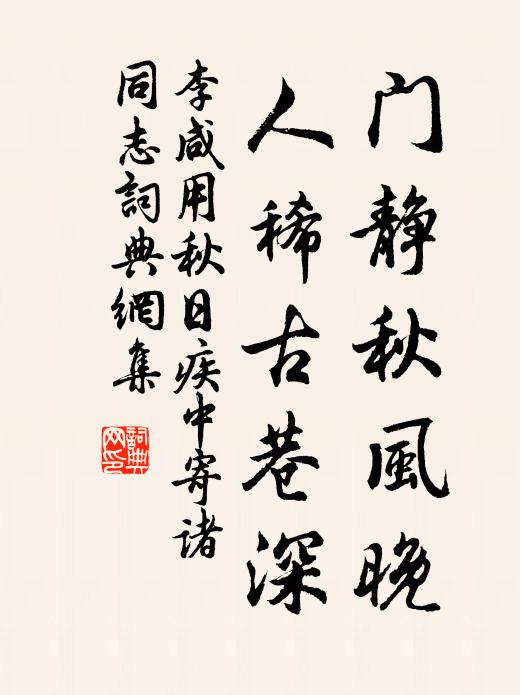 门静秋風晚
人稀古巷深
李咸用秋日疾中寄诸
同志詞典網集
詞典
网印